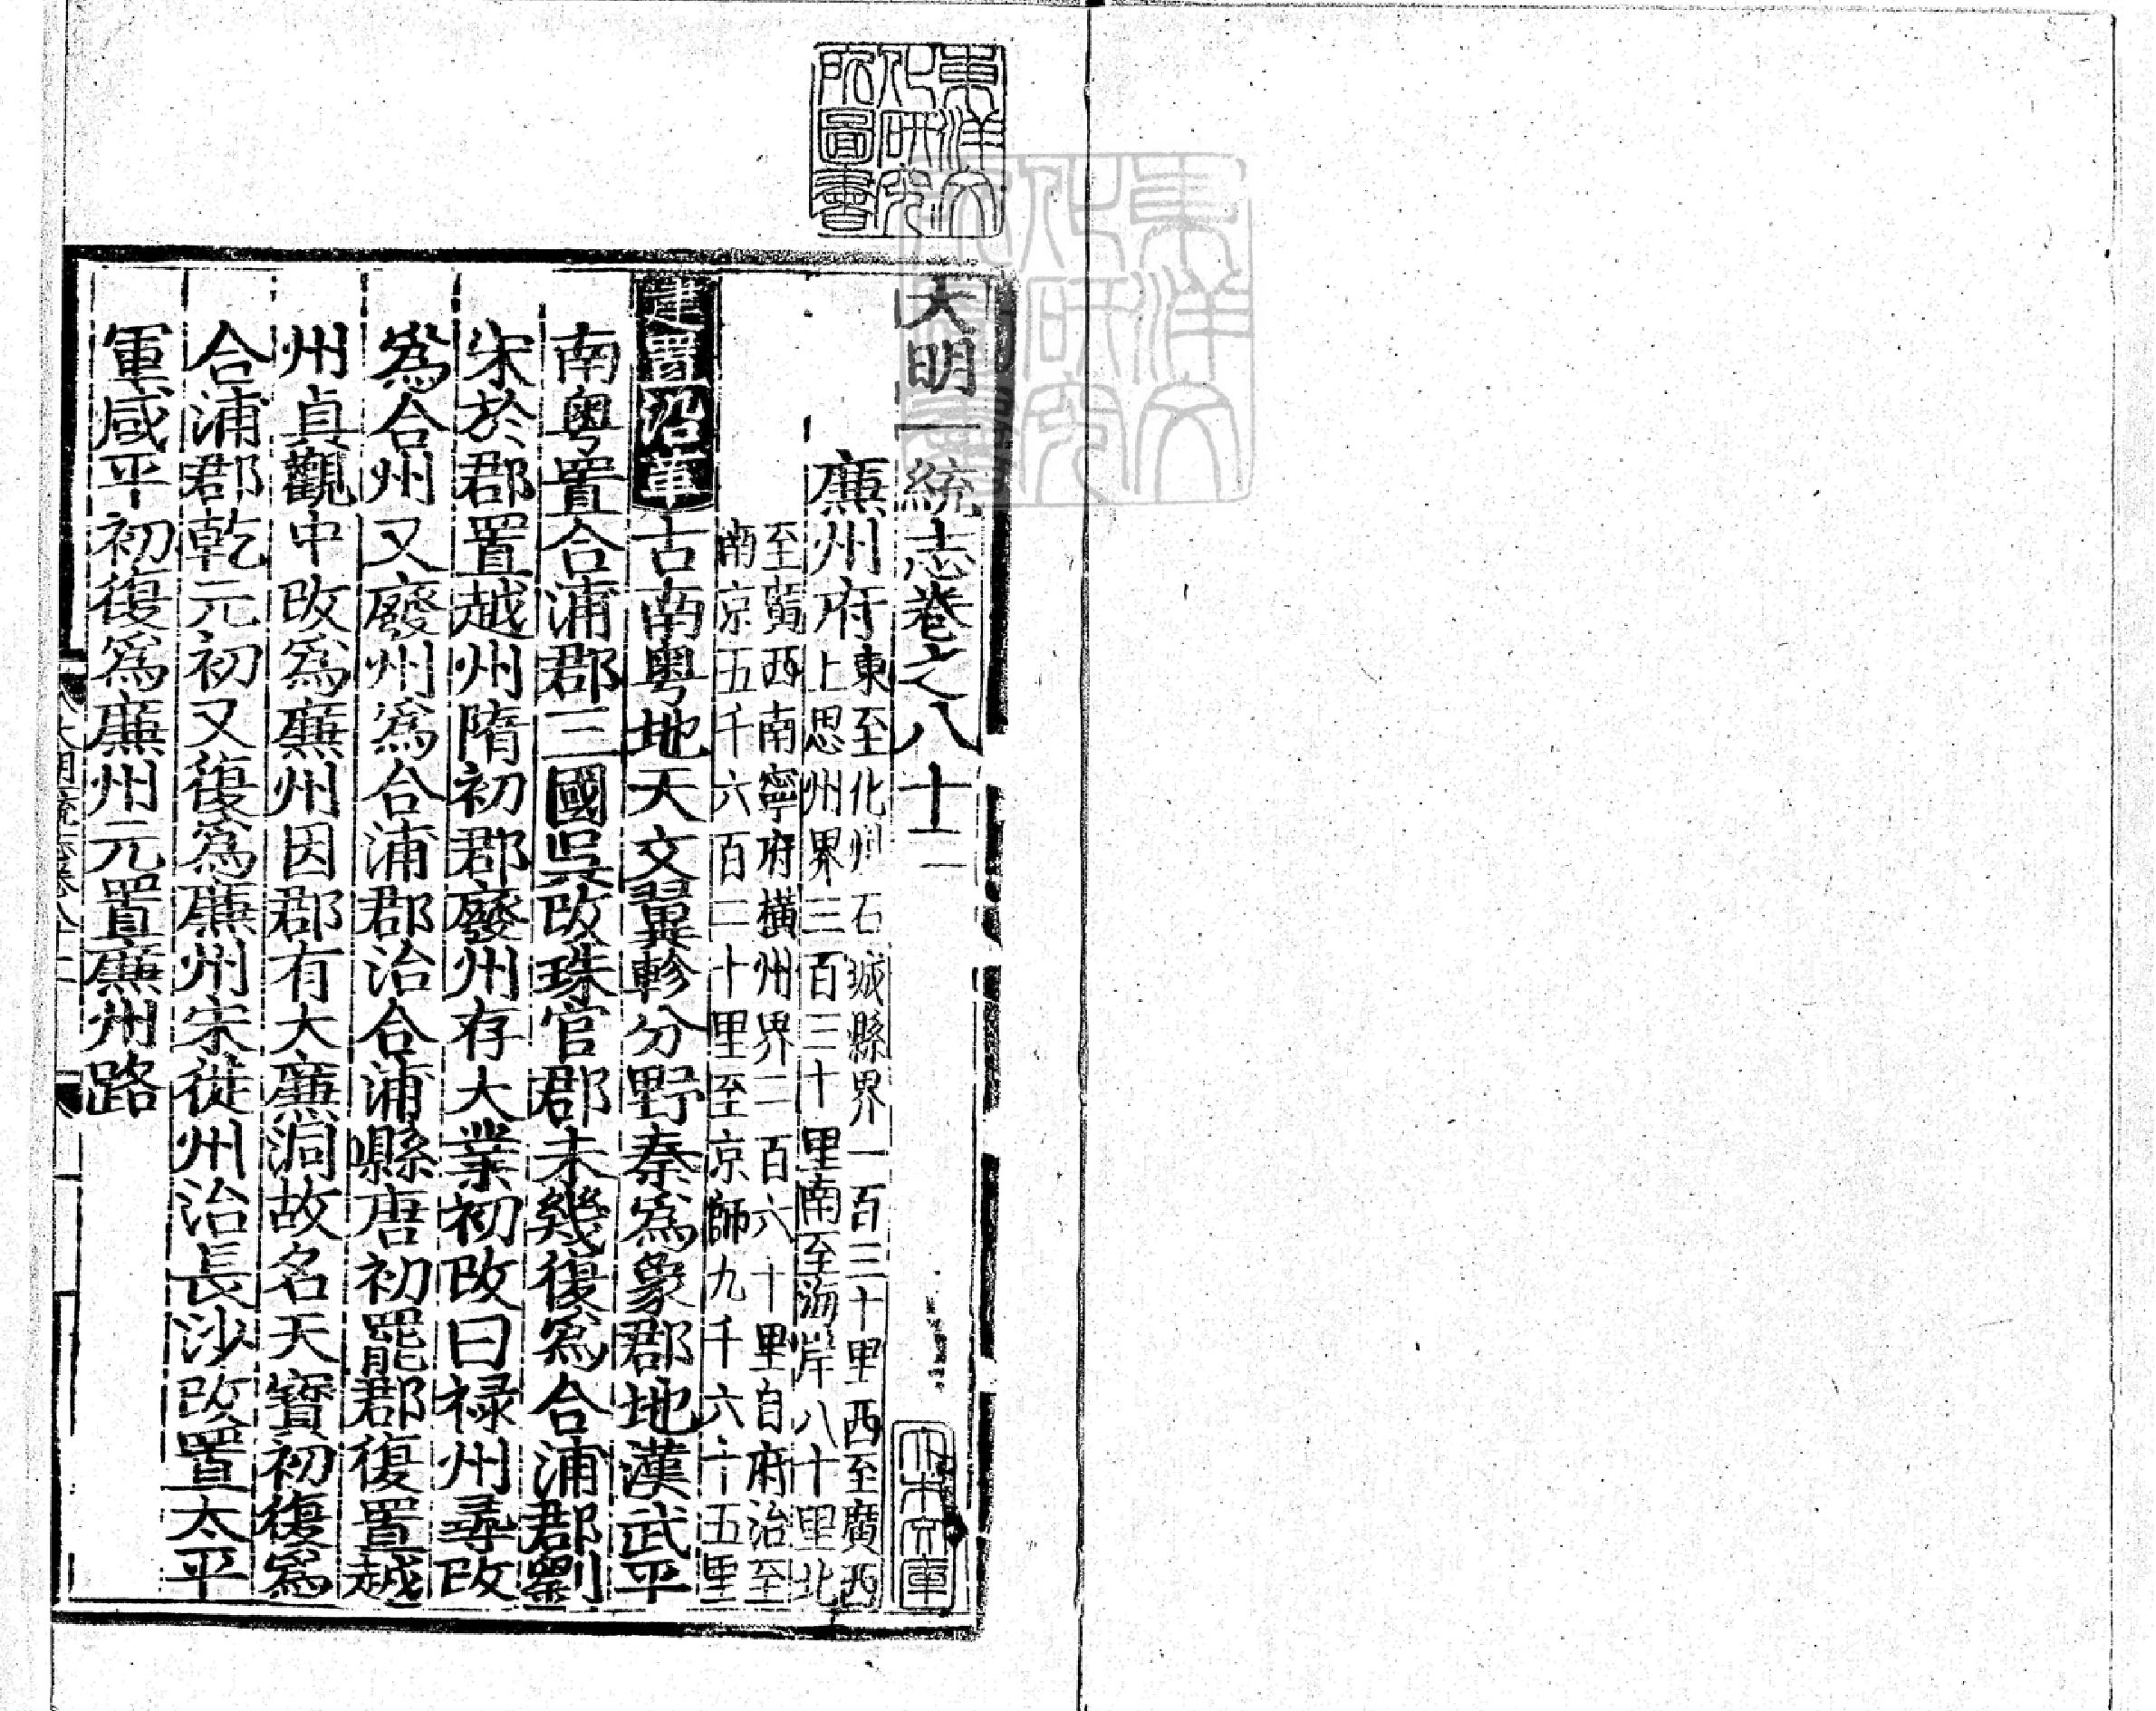 大明一統志卷之八十二
廉州府
東至化州石城縣界一百三十里西至廣西
上思州界三百三十里南至海岸八十里北
至廣西南寧府橫州界二百六十里自府治至
南京五千六百二十里至京師九千六十五里
建置沿革古南粤地天文翼軫分野秦爲象郡地漢武平
南粤置合浦郡三國吳改珠官郡未幾復爲合浦郡劉
宋於郡置越州隋初郡廢州存大業初改曰禄州尋改
爲合州又廢州爲合浦郡治合浦縣唐初罷郡復置越
州貞觀中改爲廉州因郡有大廉洞故名天寶初復爲
合浦郡乾元初又復爲廉州宋徙州治長沙改置太平
軍咸平初復爲廉州元置廉州路
大明一統志卷八十二
東洋文
化研究
所圖書
大木文庫